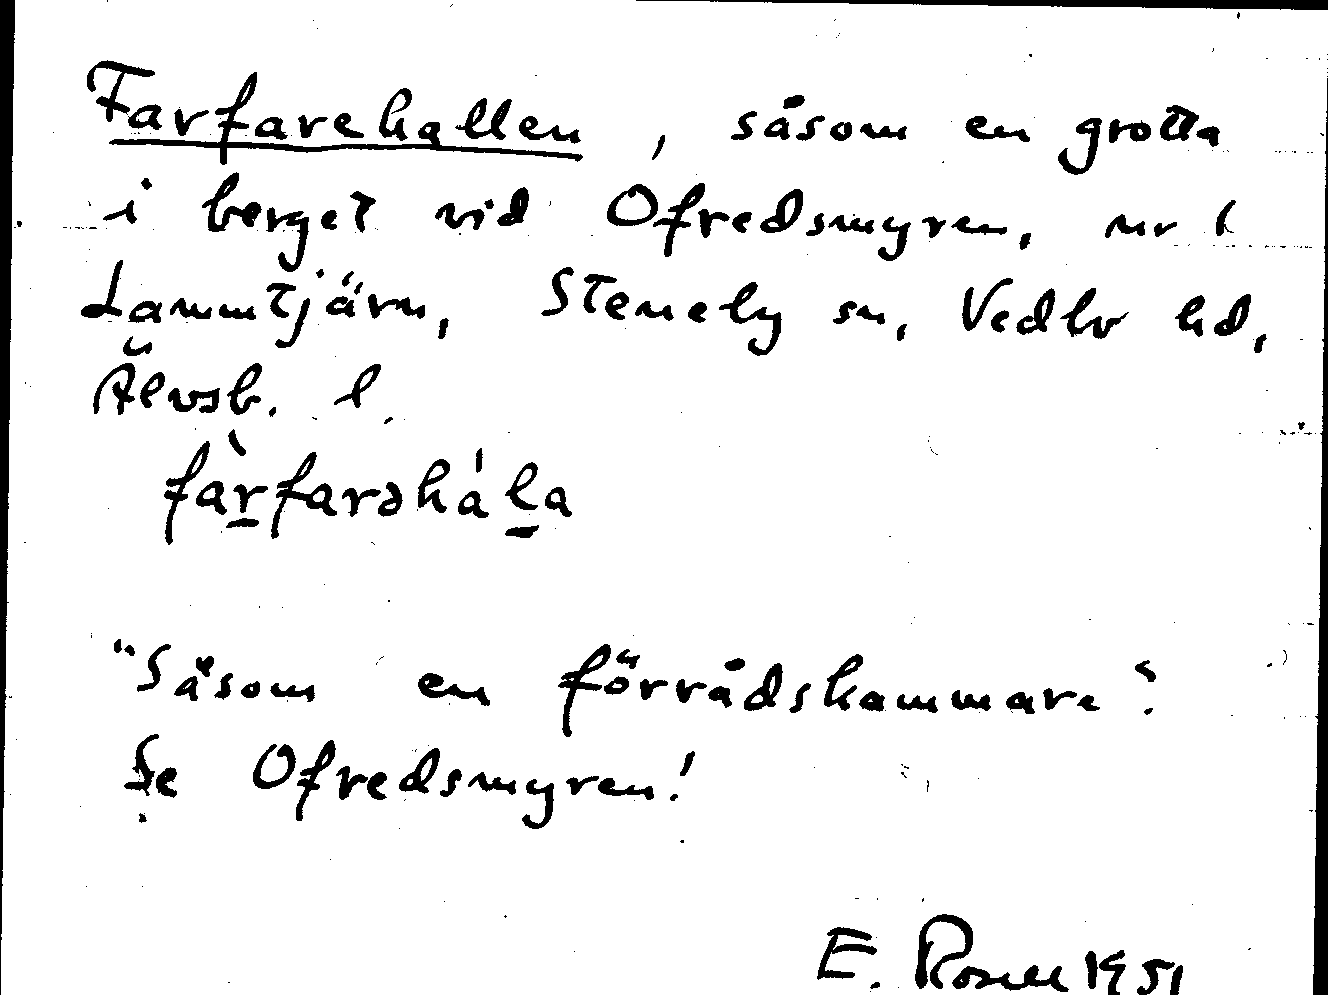 Farfarehallen, såsom en grotta
i berget vid Ofredsmyren, nr 1
Lammtjärn, Steneby sn, Vedbo hd,
Älvsb. l.
fàrfarəháḷa
"Såsom en förrådskammare".
Se Ofredsmyren!
E. Rosell 1951